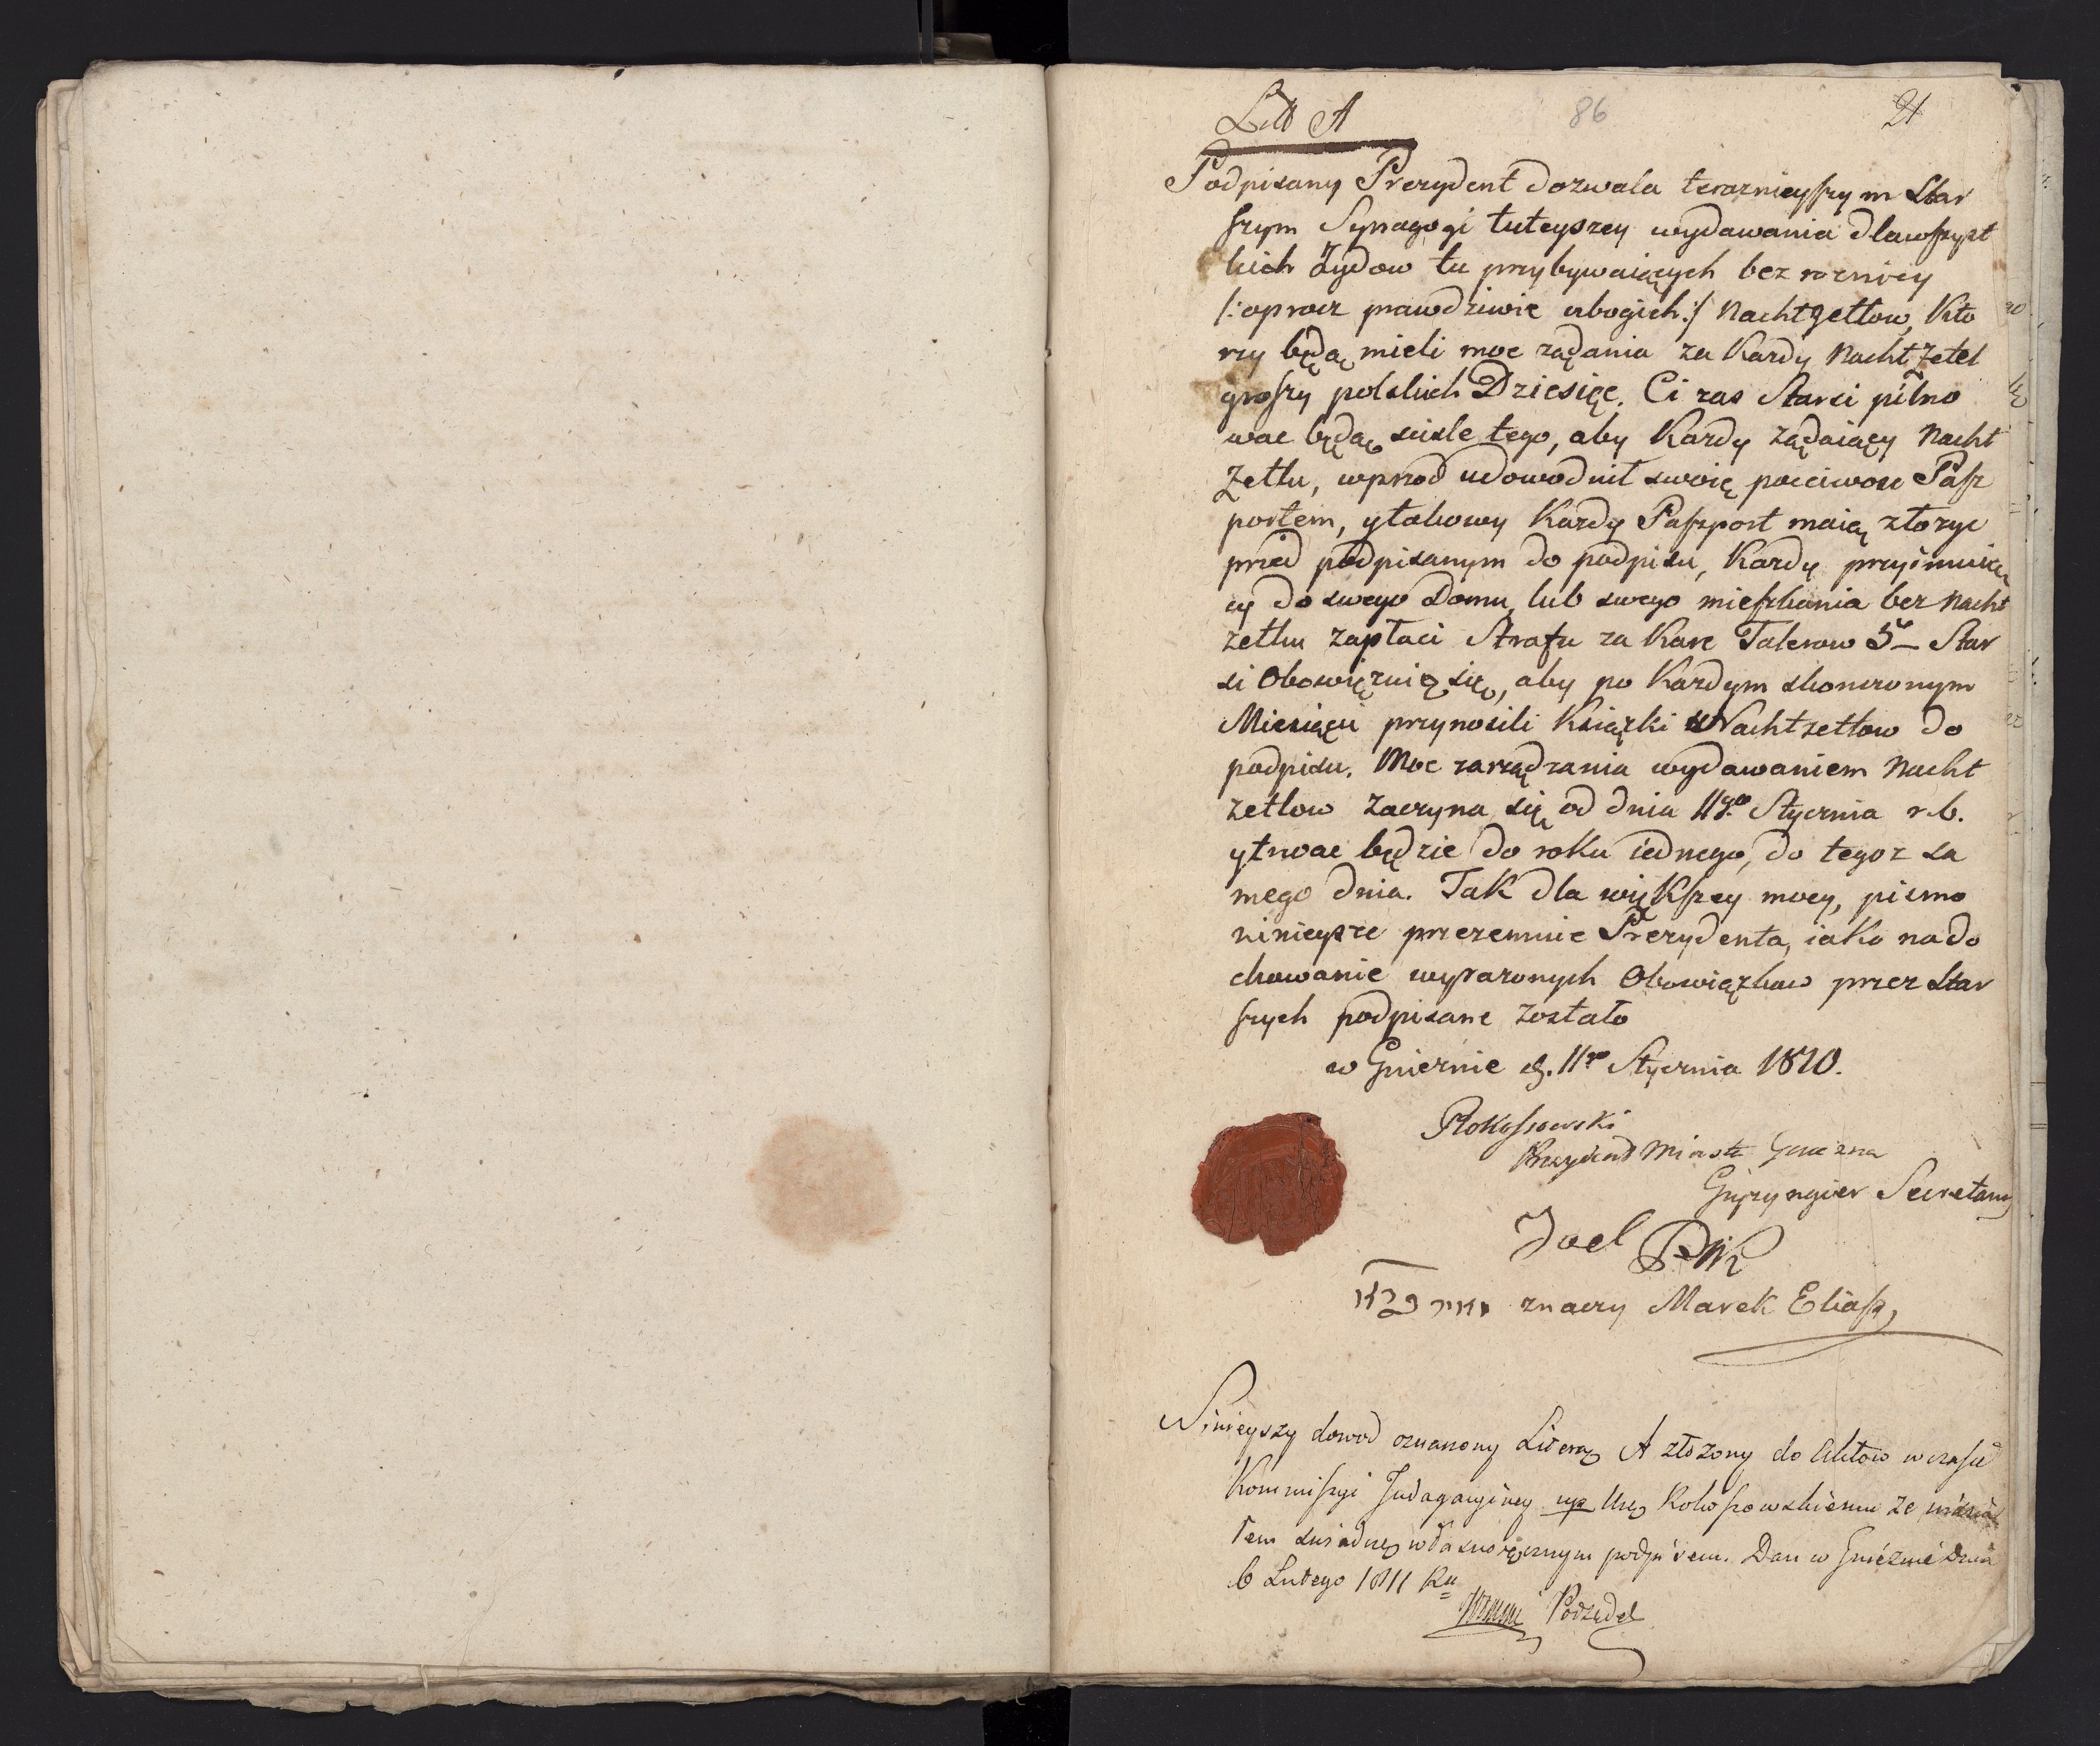 Litt A
86
21
Podpisany Prezydent dozwala teraznieyszym Star
szym Synagogi tuteyszey wydawania dla wszyst
kich Zydow tu przybywaiących bez roznicy
/: oprocz prawdziwie ubogich :/ Nachtzettlow, Kto
rzy będą mieli moc ządania za Kazdy Nachtzetel
groszy polskich Dziesięc. Ci zas Starsi pilno
wac będą scisle tego, aby Kazdy ządaiący Nacht
Zetlu, wprzod udowodnił swoię poicciwosc Pasz
portem, y takowy Kazdy Paszport maią złozyc
przed podpisanym do podpisu, Kazdy przyimuią
cy do swego Domu, lub swego mieszkania bez Nacht
zetlu zapłaci Strafu za Kare Talerow 5 — Star
si Obowięzuią się, aby po Kazdym skonczonym
Miesiącu przynosili Książki Nachtzetlow do
podpisu. Moc zarządzania wydawaniem Nacht
zetlow zaczyna się od dnia 11go Stycznia r. b.
y trwac będzie do roku iednego, do tegoz sa
mego dnia. Tak dla większey mocy, pismo
ninieysze przezemnie Prezydenta, iako na do
chowanie wyrazonych Obowiązkow przez Star
szych podpisane zostało
w Gnieznie d. 11go Stycznia 1810.
Rokossowski
Prezydent Miasta Gniezna
Secretarz
Joel
znaczy Marek Eliasz,
Ninieyszy dowod oznaczony Literą A złozony do Aktow w czasie
Kommissyi Indagacyiney Rokossowskiemu ze
własnoręcznym podpisem. Dan w Gnieznie Dnia
6 Lutego 1811 Ru